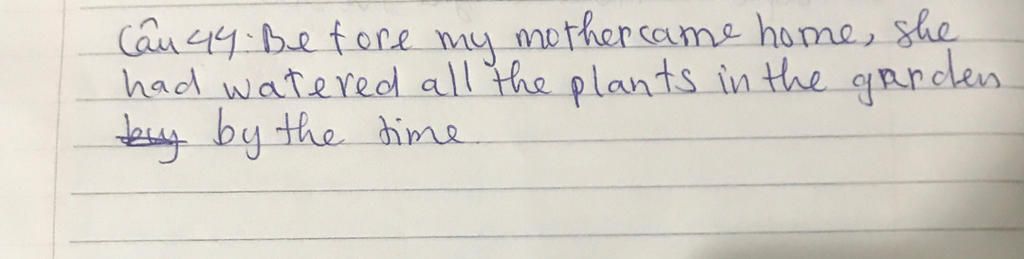 Câu 44: Before my mother came home, she
had watered all the plants in the garden
by the time